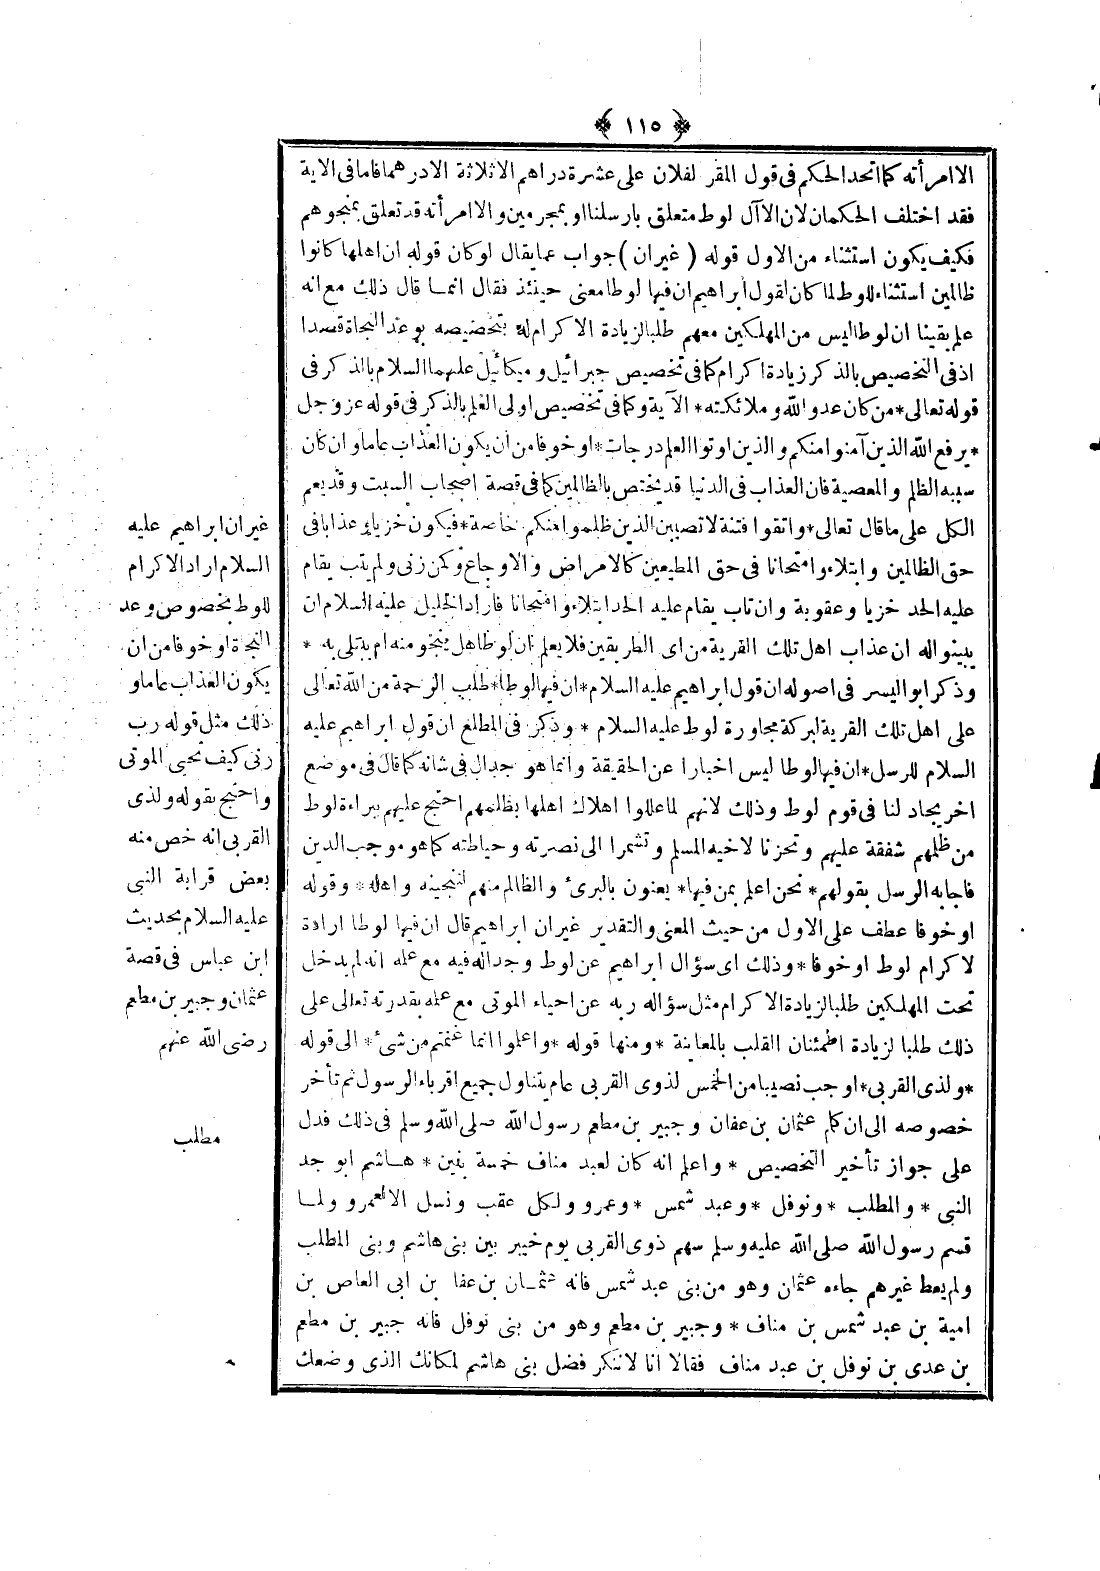 ﴿ ١١٥ ﴾
الا امرأته كما اتحد الحكم فى قول المقر لفلان على عشرة دراهم الا ثلاثة الا درهما فاما فى الاية
فقد اختلف الحكمان لان الا آل لوط متعلق بارسلنا او بمجرمين والا امرأته قد تعلق بمنجوهم
فكيف يكون استثناء من الاول قوله ( غير ان ) جواب عما يقال لو كان قوله ان اهلها كانوا
ظالمين استثناء للوط لما كان لقول ابراهيم ان فيها لوطا معنى حينئذ فقال انمـا قال ذلك مع انه
علم يقينا ان لوطا ليس من المهلكين معهم طلبا لزيادة الاكرام له بتخصيصه بوعد النجاة قصدا
اذ فى التخصيص بالذكر زيادة اكرام كما فى تخصيص جبرائيل وميكائيل عليهما السلام بالذكر فى
قوله تعالى * من كان عدوا لله وملائكته * الآية وكما فى تخصيص اولى العلم بالذكر فى قوله عز وجل
* يرفع الله الذين آمنوا منكم والذين اوتوا العلم درجات * او خوفا من ان يكون العذاب عاما وان كان
سببه الظلم والمعصية فان العذاب فى الدنيا قد يختص بالظالمين كما فى قصة اصحاب السبت وقد يعم
الكل على ما قال تعالى * واتقوا فتنة لا تصيبن الذين ظلموا منكم خاصة * فيكون خزيا وعذابا فى
حق الظالمين وابتلاء وامتحانا فى حق المطيعين كالامراض والاوجاع وكمن زنى ولم يتب يقام
عليه الحد خزيا وعقوبة وان تاب يقام عليه الحد ابتلاء وامتحانا فاراد الخليل عليه السلام ان
يبينوا له ان عذاب اهل تلك القرية من اى الطريقين فلا يعلم ان لوطا هل ينجو منه ام يبتلى به *
وذكر ابو اليسر فى اصوله ان قول ابراهيم عليه السلام * ان فيها لوطا * طلب الرحمة من الله تعالى
على اهل تلك القرية لبركة مجاورة لوط عليه السلام * وذكر فى المطلع ان قول ابراهيم عليه
السلام للرسل * ان فيها لوطا ليس اخبارا عن الحقيقة وانما هو جدال فى شانه كما قال فى موضع
اخر يجادلنا فى قوم لوط وذلك لانهم لما عللوا اهلاك اهلها بظلمهم احتج عليهم ببراءة لوط
من ظلمهم شفقة عليهم وتحزنا لاخيه المسلم وتشمرا الى نصرته وحياطته كما هو موجب الدين
فاجابه الرسل بقولهم * نحن اعلم بمن فيها * يعنون بالبرئ والظالم منهم لننجينه واهله * وقوله
او خوفا عطف على الاول من حيث المعنى والتقدير غير ان ابراهيم قال ان فيها لوطا ارادة
لاكرام لوط او خوفا * وذلك اى سؤال ابراهيم عن لوط وجداله فيه مع علمه انه لم يدخل
تحت المهلكين طلبا لزيادة الاكرام مثل سؤاله ربه عن احياء الموتى مع علمه بقدرته تعالى على
ذلك طلبا لزيادة اطمئنان القلب بالمعاينة * ومنها قوله * واعلموا انما غنمتم من شئ * الى قوله
* ولذى القربى * اوجب نصيبا من الخمس لذوى القربى عام يتناول جميع اقرباء الرسول ثم تأخر
خصوصه الى ان كلم عثمان بن عفان وجبير بن مطعم رسول الله صلى الله وسلم فى ذلك فدل
على جواز تأخير التخصيص * واعلم انه كان لعبد مناف خمسة بنين * هـاشم ابو جد
النبى * والمطلب * ونوفل * وعبد شمس * وعمرو ولكل عقب ونسل الا لعمرو ولمـا
قسم رسول الله صلى الله عليه وسلم سهم ذوى القربى يوم خيبر بين بنى هاشم وبنى المطلب
ولم يعط غيرهم جاءه عثمان وهو من بنى عبد شمس فانه عثمـان بن عفا بن ابى العاص بن
امية بن عبد شمس بن مناف * وجبير بن مطعم وهو من بنى نوفل فانه جبير بن مطعم
بن عدى بن نوفل بن عبد مناف فقالا انا لا ننكر فضل بنى هاشم لمكانك الذى وضعك
غير ان ابراهيم عليه
السلام اراد الاكرام
للوط بخصوص وعد
النجاة او خوفا من ان
يكون العذاب عاما و
ذلك مثل قوله رب
ارنى كيف تحيى الموتى
واحتج بقوله ولذى
القربى انه خص منه
بعض قرابة النبى
عليه السلام بحديث
ابن عباس فى قصة
عثمان وجبير بن مطعم
رضى الله عنهم
مطلب